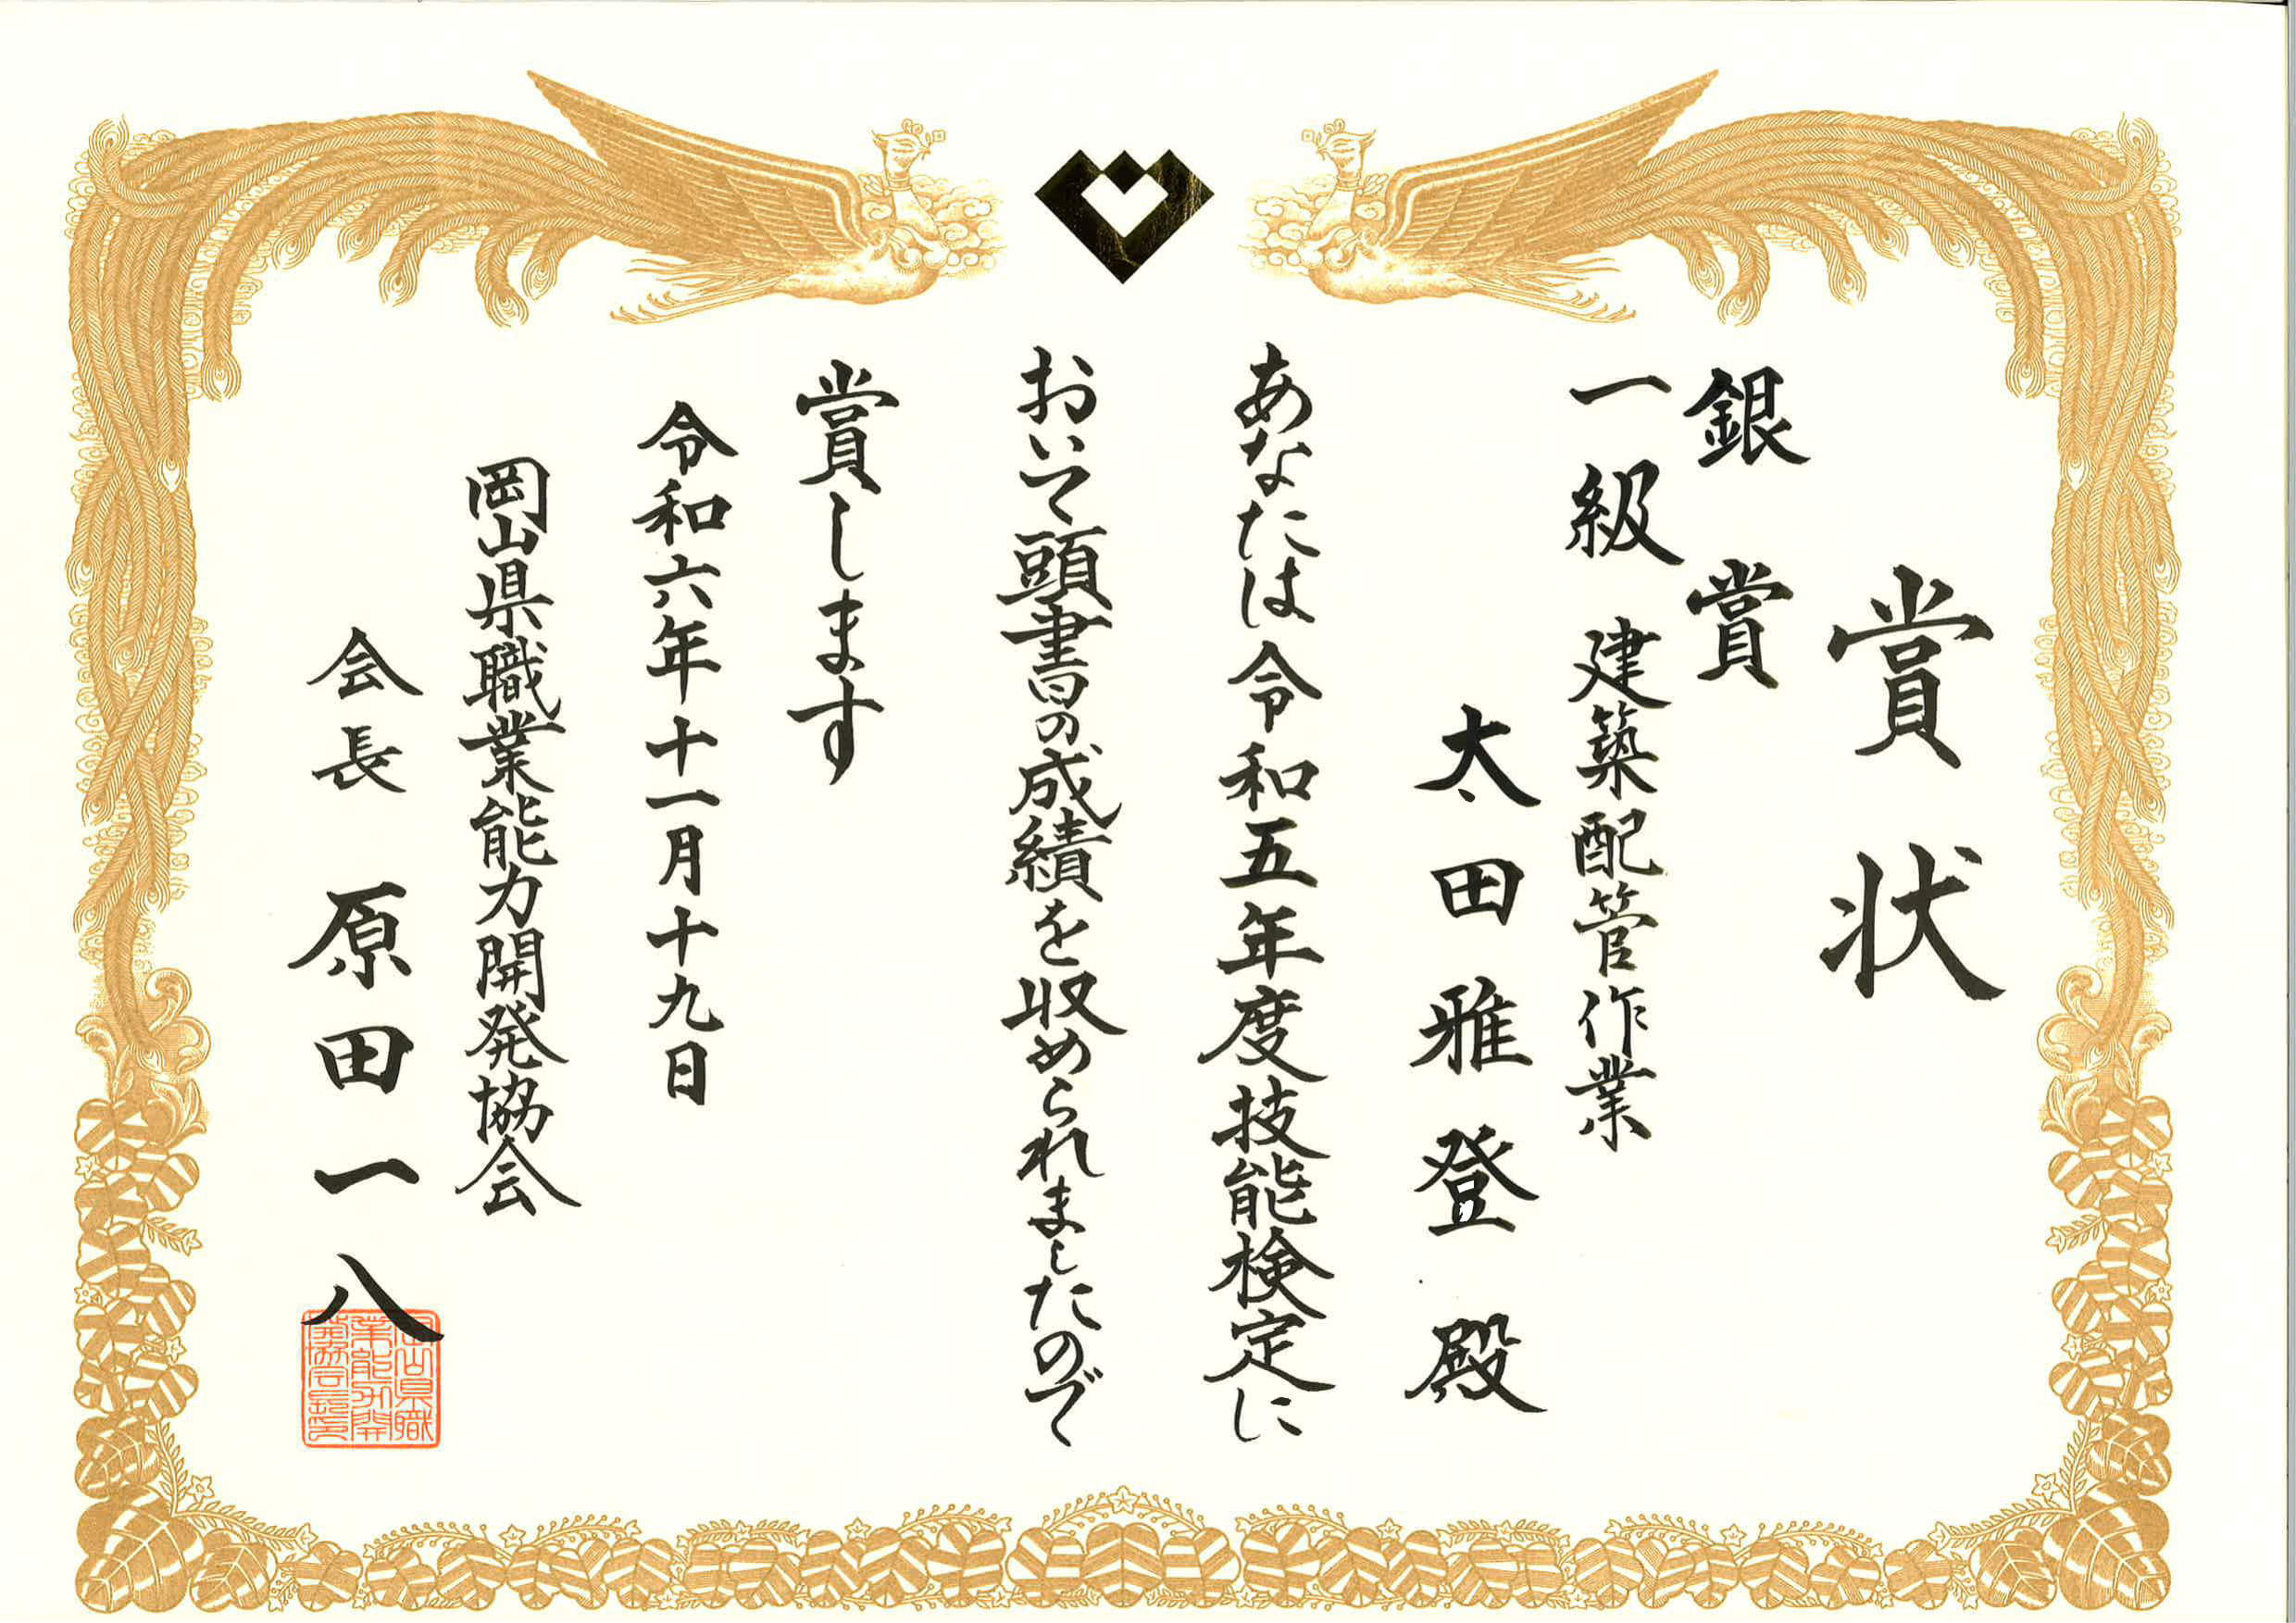 賞状
銀賞
一級 建築配管作業
太田雅登 殿
あなたは令和五年度技能検定に
おいて頭書の成績を収められましたので
賞します
令和六年十一月十九日
岡山県職業能力開発協会
会長 原田一八
岡山県職
業能力開発
協会長之印